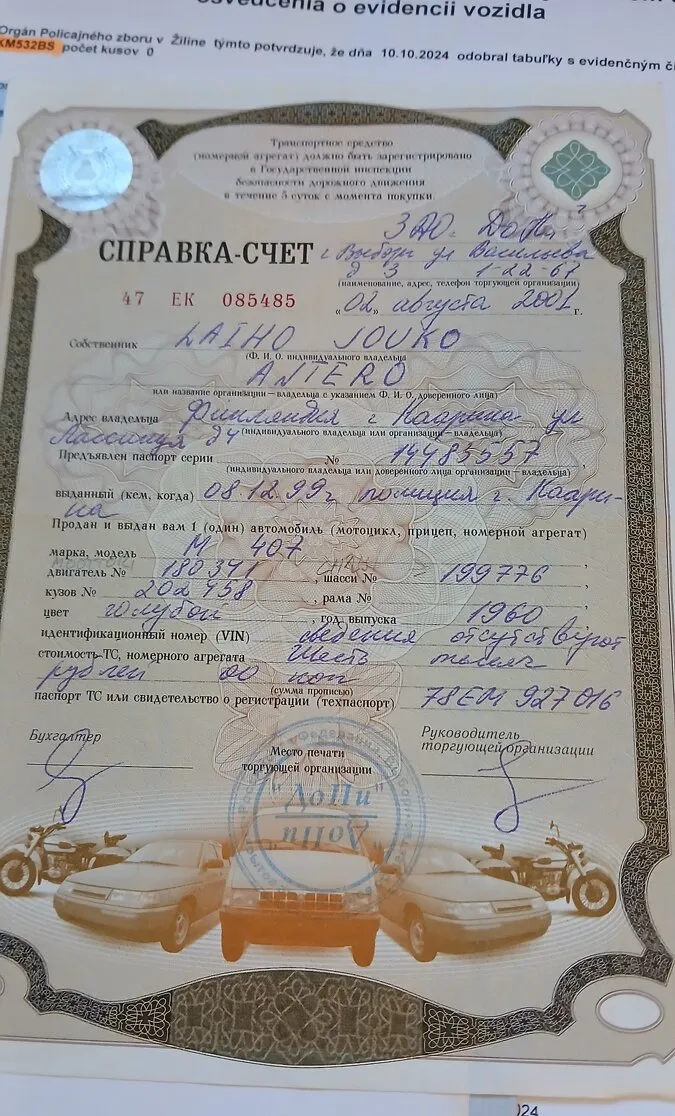 osvedčenia o evidencii vozidla
Orgán Policajného zboru v Žiline týmto potvrdzuje, že dňa 10.10.2024 odobral tabuľky s evidenčným
KM532BS počet kusov 0
Транспортное средство
(номерной агрегат) должно быть зарегистрировано
в Государственной инспекции
безопасности дорожного движения
в течение 5 суток с момента покупки.
ЗАО
СПРАВКА-СЧЕТ г Выборг ул Васильева
д 3 1-22-67
(наименование, адрес, телефон торгующей организации)
47 ЕК 085485 "02" августа 2001 г.
Собственник LAIHO JOUKO
(Ф. И. О. индивидуального владельца
ANTERO
или название организации — владельца с указанием Ф. И. О. доверенного лица)
Адрес владельца Финляндия г Каарина ул
д 4 (индивидуального владельца или организации — владельца)
Предъявлен паспорт серии № 14485557
(индивидуального владельца или доверенного лица организации — владельца)
выданный (кем, когда) 08.12.99г полиция г. Каари-
на
Продан и выдан вам 1 (один) автомобиль (мотоцикл, прицеп, номерной агрегат)
марка, модель М 407
двигатель № 180341, шасси № 199776
кузов № 202458, рама №
цвет голубой, год выпуска 1960
идентификационный номер (VIN) сведения отсутствуют
стоимость ТС, номерного агрегата Шесть тысяч
рублей 00 коп
(сумма прописью)
паспорт ТС или свидетельство о регистрации (техпаспорт) 78ЕМ 927016
Бухгалтер
Руководитель
торгующей организации
Место печати
торгующей организации
"ДоПи"
024